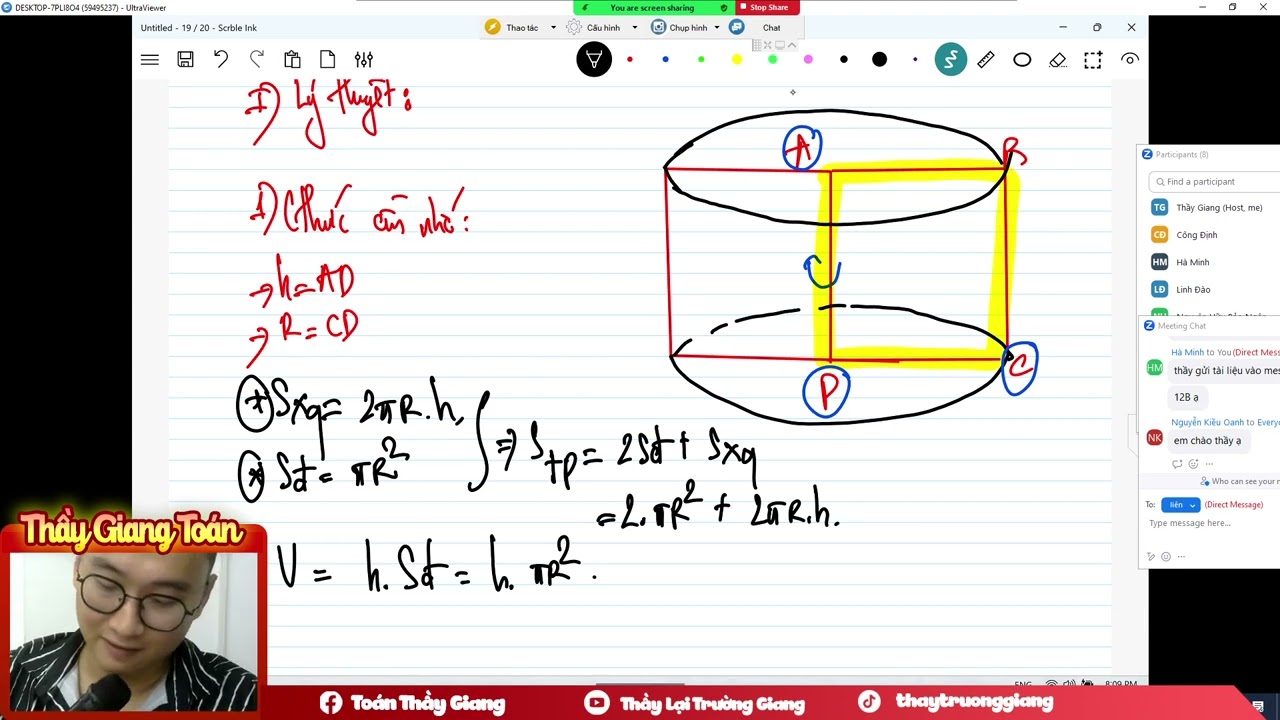 DESKTOP-7PLI8O4 (59495237) - UltraViewer
You are screen sharing
Stop Share
Untitled - 19 / 20 - Scrble Ink
Thao tác
Cấu hình
Chụp hình
Chat
I) Lý thuyết:
1) Cthức cần nhớ:
→ h = AD
→ R = CD
* Sxq = 2πR.h,
* Sđ = πR²
⇒ Stp = 2Sđ + Sxq
= 2.πR² + 2πR.h.
V = h. Sđ = h. πR².
A
B
D
C
Participants (8)
Find a participant
TG Thầy Giang (Host, me)
CĐ Công Định
HM Hà Minh
LĐ Linh Đào
Meeting Chat
Hà Minh to You (Direct Mess
HM thầy gửi tài liệu vào mes
12B ạ
Nguyễn Kiều Oanh to Every
NK em chào thầy ạ
Who can see your
To: liên (Direct Message)
Type message here...
Thầy Giang Toán
ENG
8:09 PM
Toán Thầy Giang
Thầy Lại Trường Giang
thaytruonggiang